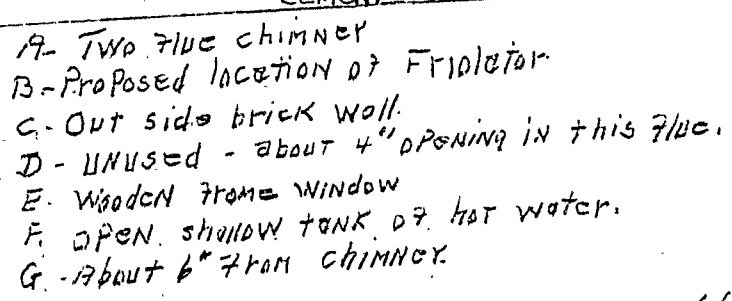 A- Two Flue chimney
B- Proposed location of Friolator
C- Out side brick wall.
D - UNUSED - about 4" opening in this flue.
E. Wooden frame window
F. Open shallow tank of hot water.
G. - About 6" from chimney.